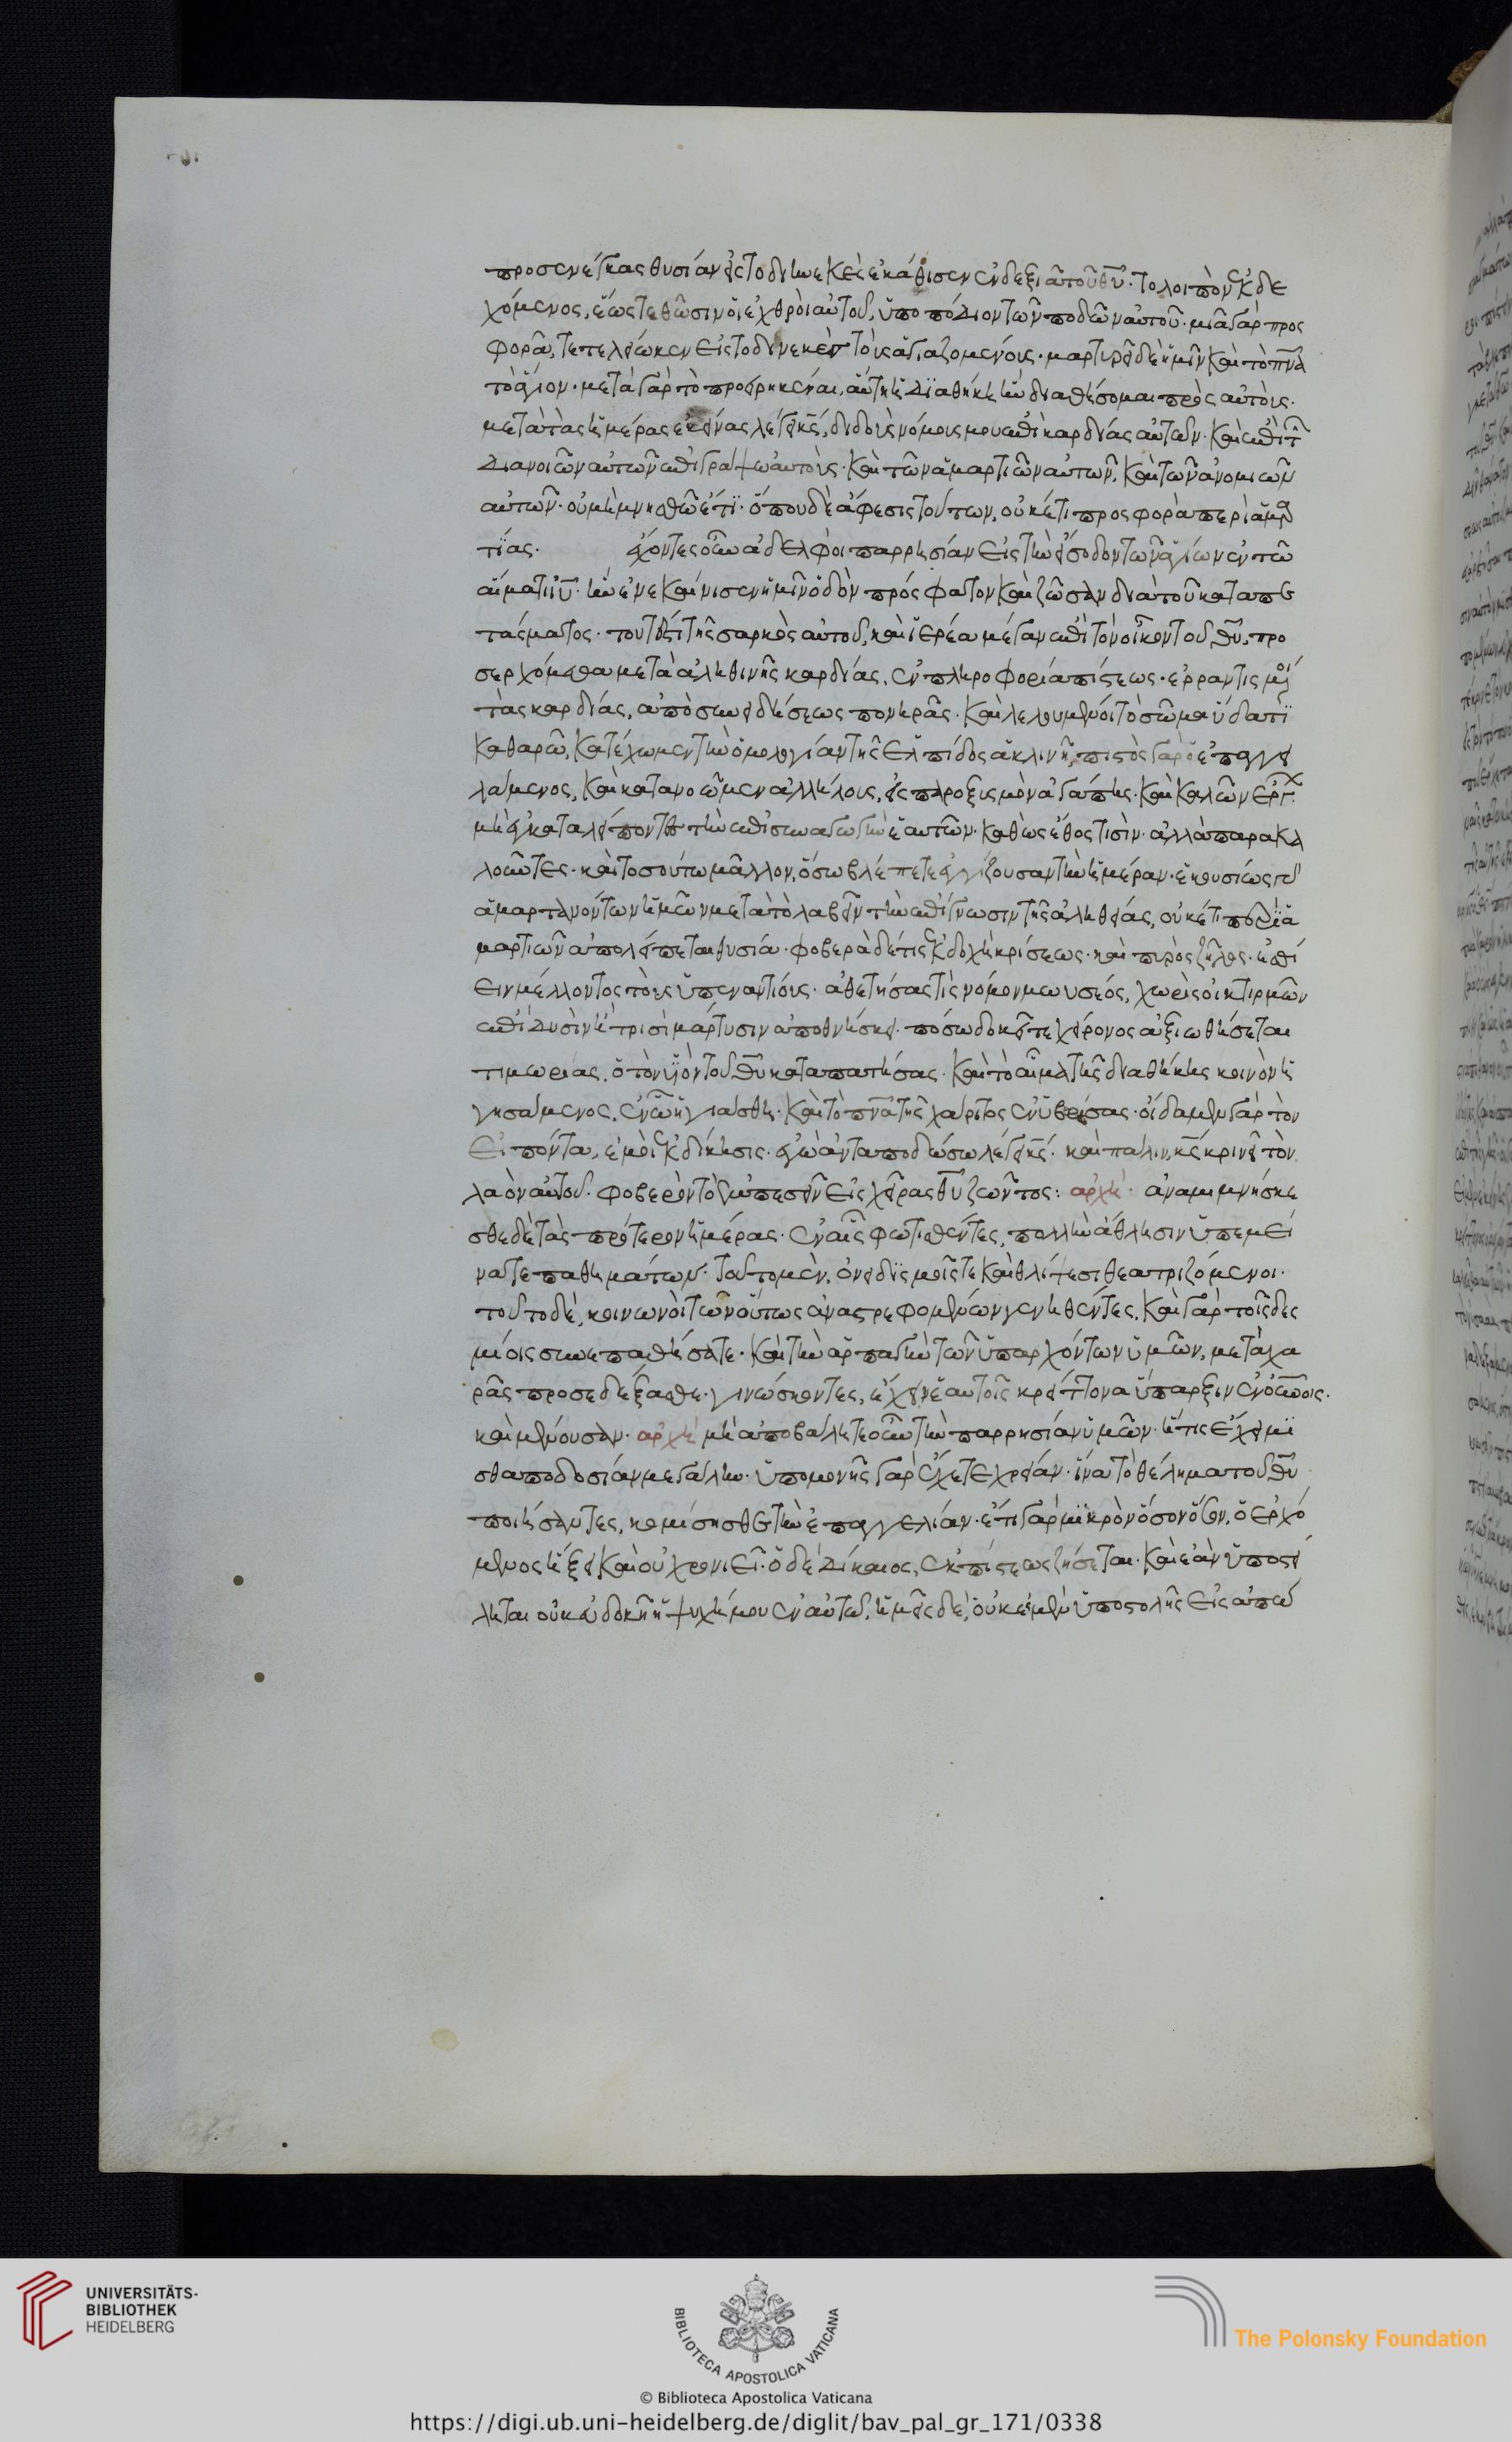 προσενέγκας θυσίαν εἰς τὸ διηνεκὲς ἐκάθισεν ἐν δεξιᾷ τοῦ θῦ· τὸ λοιπὸν ἐκδε
χόμενος, ἕως τεθῶσιν οἱ ἐχθροὶ αὐτοῦ, ὑποπόδιον τῶν ποδῶν αὐτοῦ· μιᾶ γὰρ προς
φορᾶ, τετελείωκεν εἰς τὸ διηνεκὲς τοὺς ἁγιαζομένοις· μαρτυρεῖ δὲ ἡμῖν καὶ τὸ πνα
τὸ ἅγιον· μετὰ γὰρ τὸ προειρηκέναι, αὕτη ἡ διαθήκη ἣν διαθήσομαι πρὸς αὐτοὺς·
μετὰ τὰς ἡμέρας ἐκείνας λέγει κς, διδοὺς νόμους μου ἐπὶ καρδίας αὐτῶν· καὶ ἐπὶ τ
διανοιῶν αὐτῶν ἐπιγράψω αὐτοὺς· καὶ τῶν ἁμαρτιῶν αὐτῶν, καὶ τῶν ἀνομιῶν
αὐτῶν· οὐ μὴ μνησθῶ ἔτι· ὅπου δὲ ἄφεσις τούτων, οὐκέτι προσφορὰ περὶ ἁμαρ
τίας· ἔχοντες οὖν ἀδελφοὶ παρρησίαν εἰς τὴν εἴσοδον τῶν ἁγίων ἐν τῶ
αἵματι ιυ· ἣν ἐνεκαίνισεν ἡμῖν ὁδὸν πρόσφατον καὶ ζῶσαν διὰ τοῦ καταπε
τάσματος· τουτέστι τῆς σαρκὸς αὐτοῦ, καὶ ἱερέα μέγαν ἐπὶ τὸν οἶκον τοῦ θυ, προ
σερχόμεθα μετὰ ἀληθινῆς καρδίας, ἐν πληροφορία πίστεως· ἐρραντισμοι
τὰς καρδίας, ἀπὸ συνειδήσεως πονηρᾶς· καὶ λελουμένοι τὸ σῶμα ὕδατι
καθαρῶ, κατέχωμεν τὴν ὁμολογίαν τῆς ἐλπίδος ἀκλινῆ, πιστὸς γὰρ ὁ ἐπαγγει
λάμενος, καὶ κατανοῶμεν ἀλλήλους, εἰς παροξισμὸν ἀγάπης· καὶ καλῶν ἔργ·
μὴ ἐγκαταλείποντες τὴν ἐπισυναγωγὴν ἑαυτῶν· καθὼς ἔθος τισὶν· ἀλλὰ παρακα
λοῦντες· καὶ τοσούτω μᾶλλον, ὅσω βλέπετε ἐγγίζουσαν τὴν ἡμέραν· ἑκουσίως γὰρ
ἁμαρτανόντων ἡμῶν μετὰ τὸ λαβεῖν τὴν ἐπίγνωσιν τῆς ἀληθείας, οὐκέτι περὶ ἁ
μαρτιῶν ἀπολείπεται θυσία· φοβερὰ δέ τις ἐκδοχὴ κρίσεως· καὶ πυρὸς ζῆλος· ἐσθί
ειν μέλλοντος τοὺς ὑπεναντίους· ἀθετήσας τὶς νόμον μωυσέος, χωρὶς οἰκτιρμῶν
ἐπὶ δυσὶν ἢ τρισὶ μάρτυσιν ἀποθνήσκει· πόσω δοκεῖτε χείρονος ἀξιωθήσεται
τιμωρίας, ὁ τὸν υἱὸν τοῦ θυ καταπατήσας· καὶ τὸ αἷμα τῆς διαθήκης κοινὸν ἡ
γησάμενος, ἐν ὧ ἡγιάσθη· καὶ τὸ πνα τῆς χάριτος ἐνυβρίσας· οἴδαμεν γὰρ τὸν
εἰπόντα, ἐμοὶ ἐκδίκησις· ἐγὼ ἀνταποδώσω λέγει κς· καὶ πάλιν, κς κρινεῖ τὸν
λαὸν αὐτοῦ· φοβερὸν τὸ ἐμπεσεῖν εἰς χεῖρας θυ ζῶντος: αρχη· ἀναμιμνήσκε
σθε δὲ τὰς πρότερον ἡμέρας· ἐν αἷς φωτισθέντες, πολλὴν ἄθλησιν ὑπεμεί
νατε παθημάτων· τοῦτο μὲν, ὀνειδισμοῖς τε καὶ θλίψεσι θεατριζόμενοι·
τοῦτο δὲ, κοινωνοὶ τῶν οὕτως ἀναστρεφομένων γενηθέντες, καὶ γὰρ τοῖς δεσ
μίοις συνεπαθήσατε· καὶ τὴν ἁρπαγὴν τῶν ὑπαρχόντων ὑμῶν, μετὰ χα
ρᾶς προσεδέξασθε· γινώσκοντες, ἔχειν ἑαυτοῖς κρείττονα ὕπαρξιν ἐν οὐνοις·
καὶ μένουσαν· αρχη μὴ ἀποβάλητε οὖν τὴν παρρησίαν ὑμῶν· ἥτις ἔχει μι
σθαποδοσίαν μεγάλην· ὑπομονῆς γὰρ ἔχετε χρείαν· ἵνα τὸ θέλημα τοῦ θυ
ποιήσαντες, κομίσησθε τὴν ἐπαγγελίαν· ἔτι γὰρ μικρὸν ὅσον ὅσον, ὁ ἐρχό
μενος ἥξει καὶ οὐ χρονιεῖ· ὁ δὲ δίκαιος, ἐκ πίστεως ζήσεται· καὶ ἐὰν ὑποστεί
ληται οὐκ εὐδοκεῖ ἡ ψυχή μου ἐν αὐτῶ, ἡμεῖς δὲ, οὐκ ἐσμὲν ὑποστολῆς εἰς ἀπώ
UNIVERSITÄTS-
BIBLIOTHEK
HEIDELBERG
BIBLIOTECA APOSTOLICA VATICANA
The Polonsky Foundation
© Biblioteca Apostolica Vaticana
https://digi.ub.uni-heidelberg.de/diglit/bav_pal_gr_171/0338